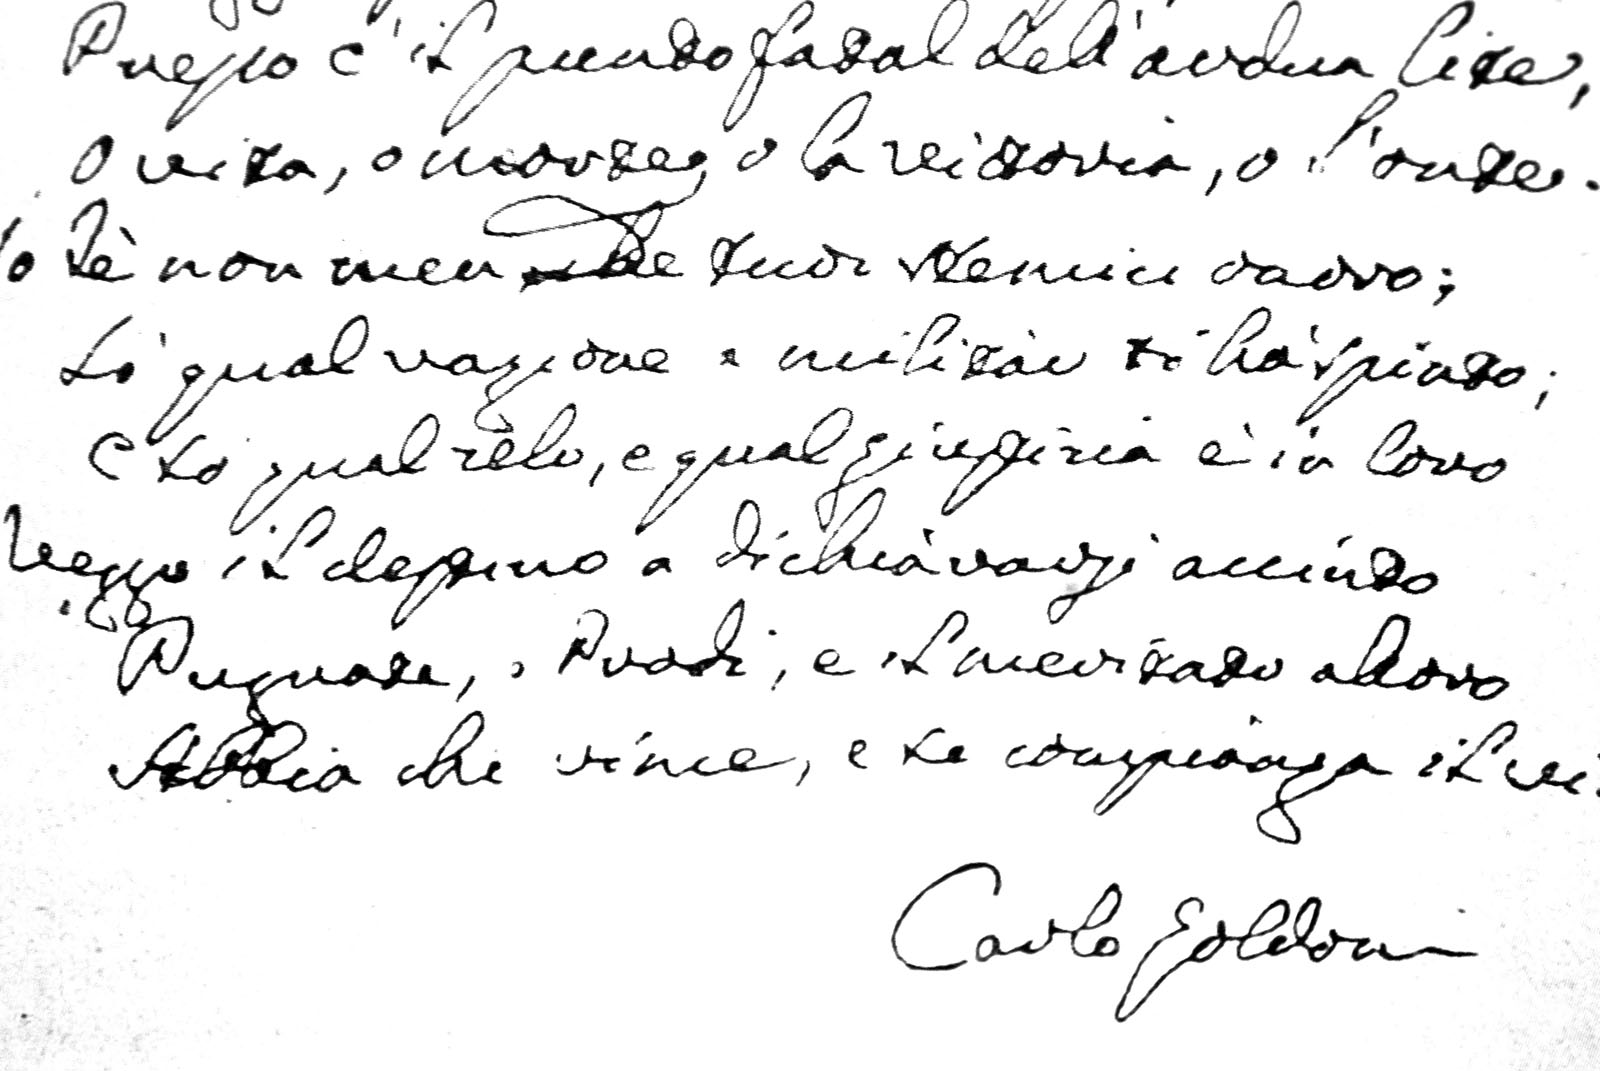 Questo è il punto fatal dell'ardua lite,
O vita, o morte, o la vittoria, o l'onte.
Io tè non men che tuoi nemici onoro;
Sò qual ragione a militàr ti hà spinto;
E sò qual zelo, e qual giustizia è in loro
Veggo il destino a dichiàrarsi accinto
Pugnate, o Prodi, e il meritato alloro
Abbia chi vince, e se compianga il vi
Carlo Goldoni